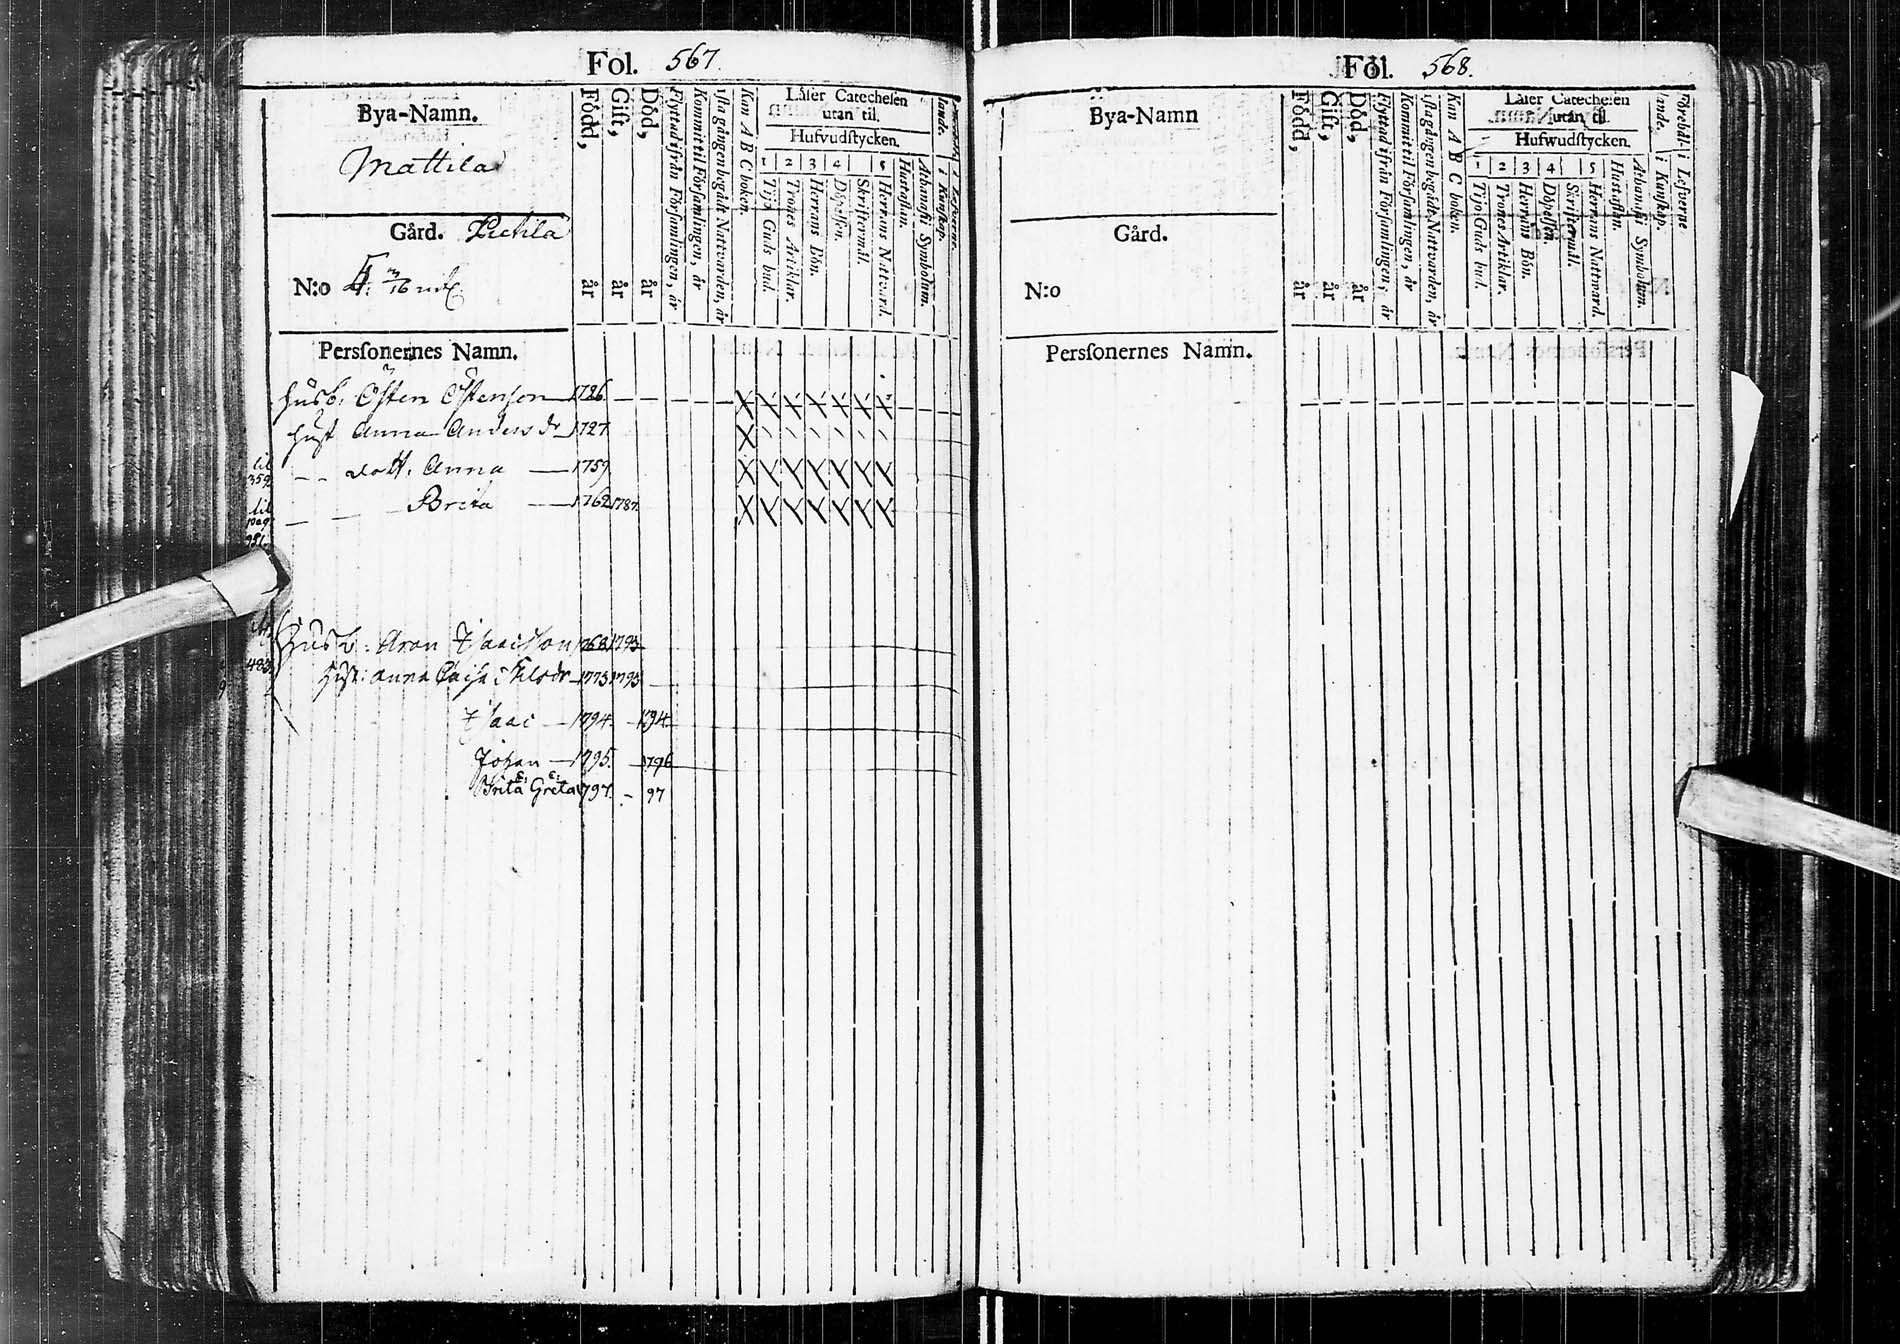 Fol. 567.
Bya-Namn.
Mattila
Gård.
N:o
Född, år
Gift, år
Död, år
Flyttad ifrån Församlingen, år
Kommit til Församlingen, år
Kan A B C boken.
Läser Catechesen
utan til.
Hufvudstycken.
1 2 3 4 5
Tijo Guds bud.
Trones Artiklar.
Herrans Bön.
Döpelsen.
Skriftermål.
Herrans Nattvard.
Hustaflan.
Athanasii Symbolum.
i Kunskap.
Persſonernes Namn.
Husb: Östen Östenson 1726
Hust Anna Anders dr 1727
til 359 dott. Anna 1759
til pag Brita 1762 1787
483 Husb: Aron Isaacsson 1768 1793
Hust: Anna Caisa Nilsdr 1775 1793
Isaac 1794 1794
Johan 1795 1796
Brita Greta 1797 97
Fol. 568.
Bya-Namn
Gård.
N:o
Född, år
Gift, år
Död, år
Flyttad ifrån Församlingen, år
Kommit til Församlingen, år
Kan A B C boken.
Läser Catechesen
utan til.
Hufwudſtycken.
1 2 3 4 5
Tijo Guds bud.
Trones Artiklar.
Herrans Bön.
Döpelsen.
Skriftermål.
Herrans Nattward.
Hustaflan.
Athanasii Symbolum.
i Kunskap.
i Lefverne.
Persſonernes Namn.